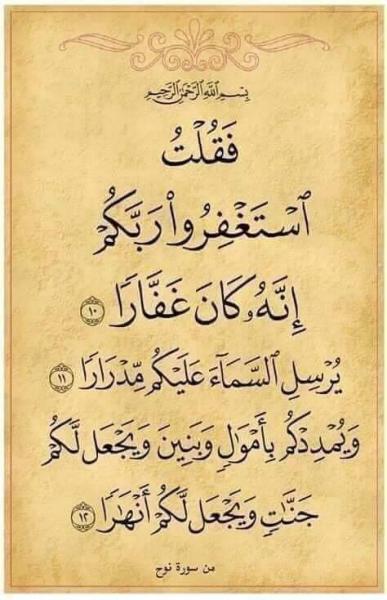 بِسْمِ ٱللَّهِ ٱلرَّحْمَٰنِ ٱلرَّحِيمِ
فَقُلْتُ
ٱسْتَغْفِرُوا۟ رَبَّكُمْ
إِنَّهُۥ كَانَ غَفَّارًا ١٠
يُرْسِلِ ٱلسَّمَآءَ عَلَيْكُم مِّدْرَارًا ١١
وَيُمْدِدْكُم بِأَمْوَٰلٍ وَبَنِينَ وَيَجْعَل لَّكُمْ
جَنَّٰتٍ وَيَجْعَل لَّكُمْ أَنْهَٰرًا ١٢
من سورة نوح